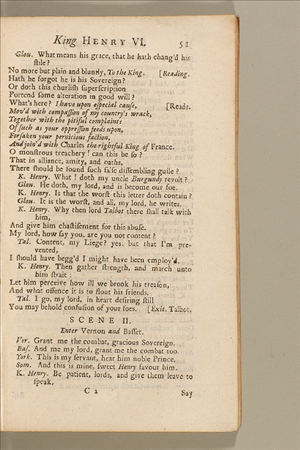 King HENRY VI. 51
Glou. What means his grace, that he hath chang'd his
stile?
No more but plain and bluntly, To the King. [Reading.
Hath he forgot he is his Sovereign?
Or doth this churlish superscription
Portend some alteration in good will?
What's here? I have upon especial cause, [Reads.
Mov'd with compassion of my country's wrack,
Together with the pitiful complaints
Of such as your oppression feeds upon,
Forsaken your pernicious faction,
And join'd with Charles the rightful King of France.
O monstrous treachery! can this be so?
That in alliance, amity, and oaths,
There should be found such false dissembling guile?
K. Henry. What! doth my uncle Burgundy revolt?
Glou. He doth, my lord, and is become our foe.
K. Henry. Is that the worst this letter doth contain?
Glou. It is the worst, and all, my lord, he writes.
K. Henry. Why then lord Talbot there shall talk with
him,
And give him chastisement for this abuse.
My lord, how say you, are you not content?
Tal. Content, my Liege? yes: but that I'm pre-
vented,
I should have begg'd I might have been employ'd.
K. Henry. Then gather strength, and march unto
him strait:
Let him perceive how ill we brook his treason,
And what offence it is to flout his friends.
Tal. I go, my lord, in heart desiring still
You may behold confusion of your foes. [Exit. Talbot.
SCENE II.
Enter Vernon and Basset.
Ver. Grant me the combat, gracious Sovereign.
Bas. And me my lord, grant me the combat too.
York. This is my servant, hear him noble Prince.
Som. And this is mine, sweet Henry favour him.
K. Henry. Be patient, lords, and give them leave to
speak.
C 2 Say